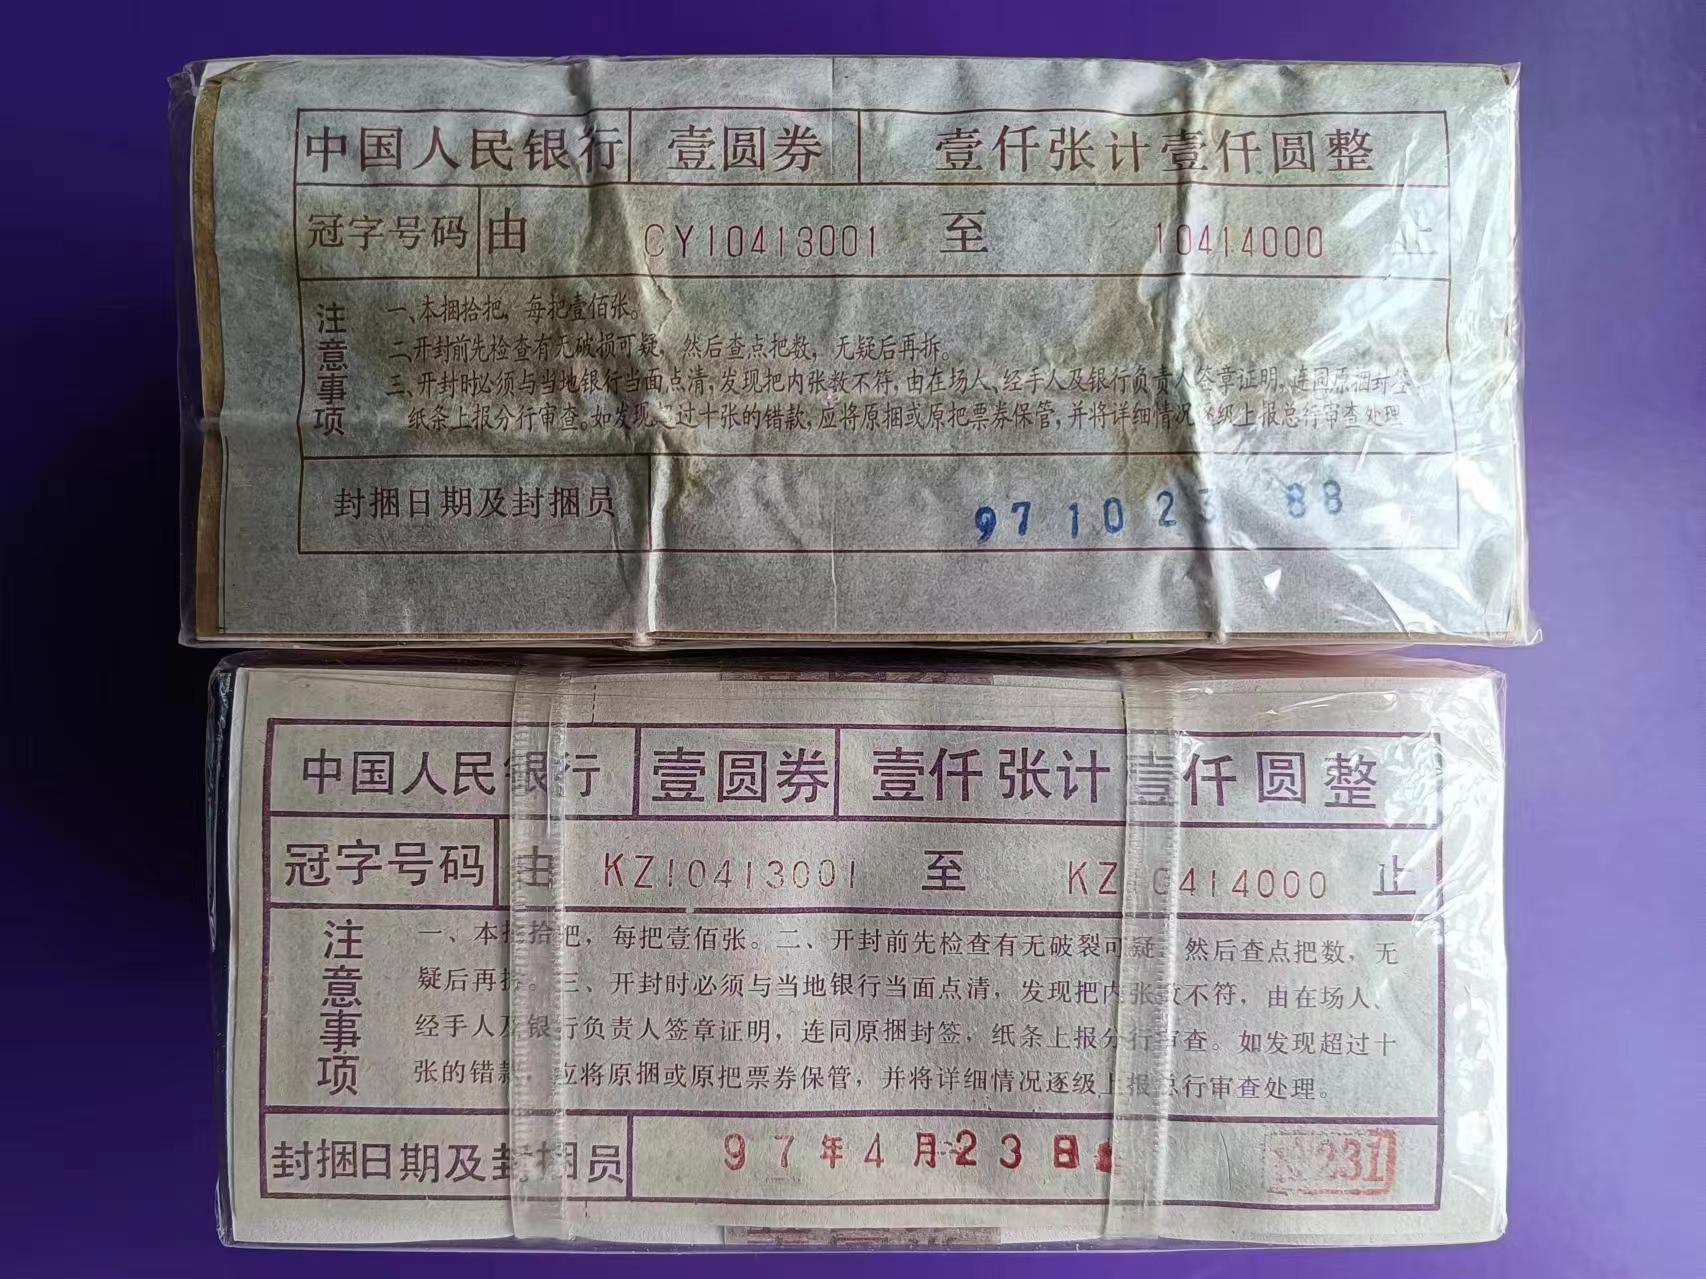 中国人民银行 壹圆券 壹仟张计壹仟圆整
冠字号码 由 CY10413001 至 10414000 止
注意事项
一、本捆拾把，每把壹佰张。
二、开封前先检查有无破损可疑，然后查点把数，无疑后再拆。
三、开封时必须与当地银行当面点清，发现把内张数不符，由在场人、经手人及银行负责人签章证明，连同原捆封签、
纸条上报分行审查。如发现超过十张的错款，应将原捆或原把票券保管，并将详细情况逐级上报总行审查处理
封捆日期及封捆员 97 10 23 88
中国人民银行 壹圆券 壹仟张计壹仟圆整
冠字号码 由 KZ10413001 至 KZ10414000 止
注意事项
一、本捆拾把，每把壹佰张。二、开封前先检查有无破裂可疑，然后查点把数，无
疑后再拆。三、开封时必须与当地银行当面点清，发现把内张数不符，由在场人、
经手人及银行负责人签章证明，连同原捆封签，纸条上报分行审查。如发现超过十
张的错款，应将原捆或原把票券保管，并将详细情况逐级上报总行审查处理。
封捆日期及封捆员 97年4月23日 231